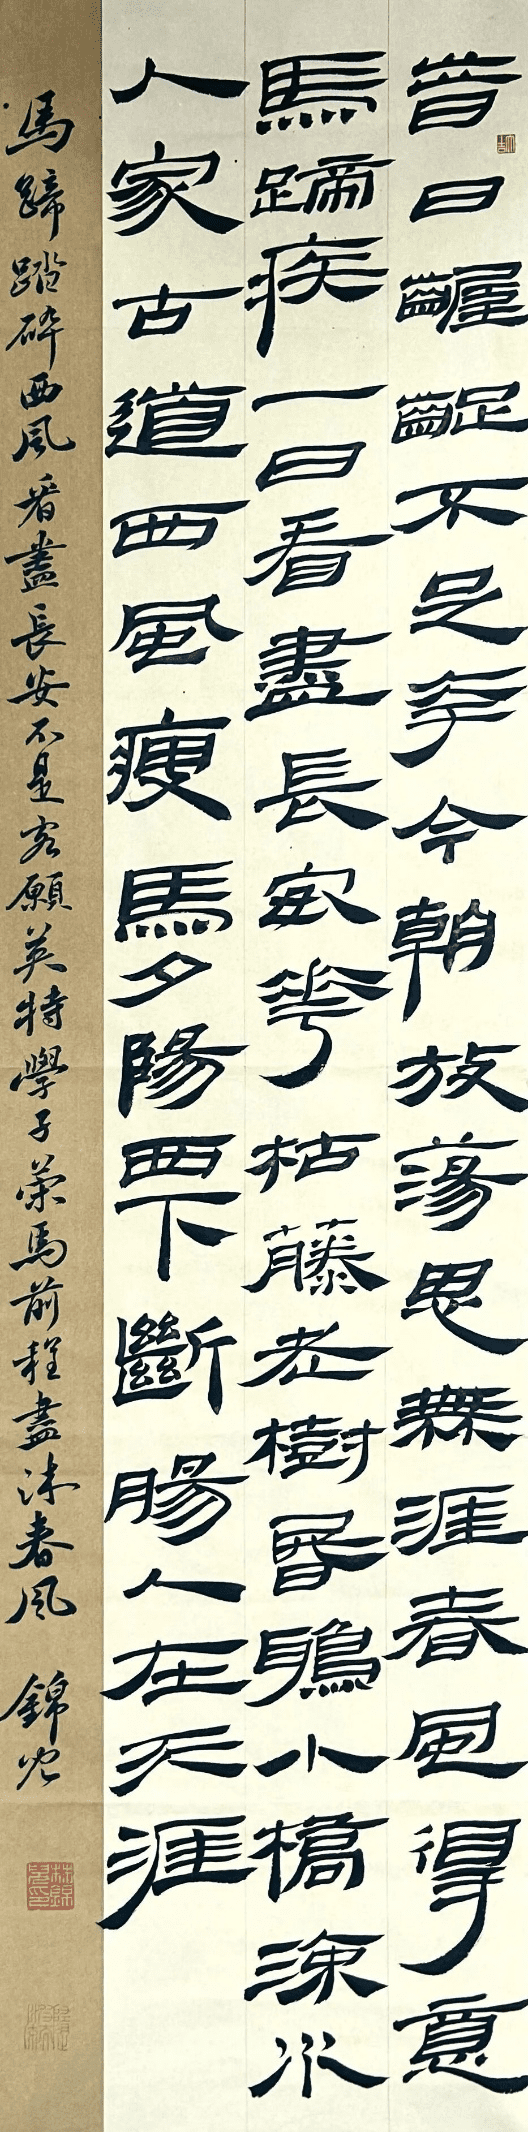 昔日齷齪不足夸今朝放蕩思無涯春風得意
馬蹄疾一日看盡長安華枯藤老樹昏鴉小橋流水
人家古道西風瘦馬夕陽西下斷腸人在天涯
馬蹄踏碎西風看盡長安不是客願英特學子策馬前程盡沐春風 錦